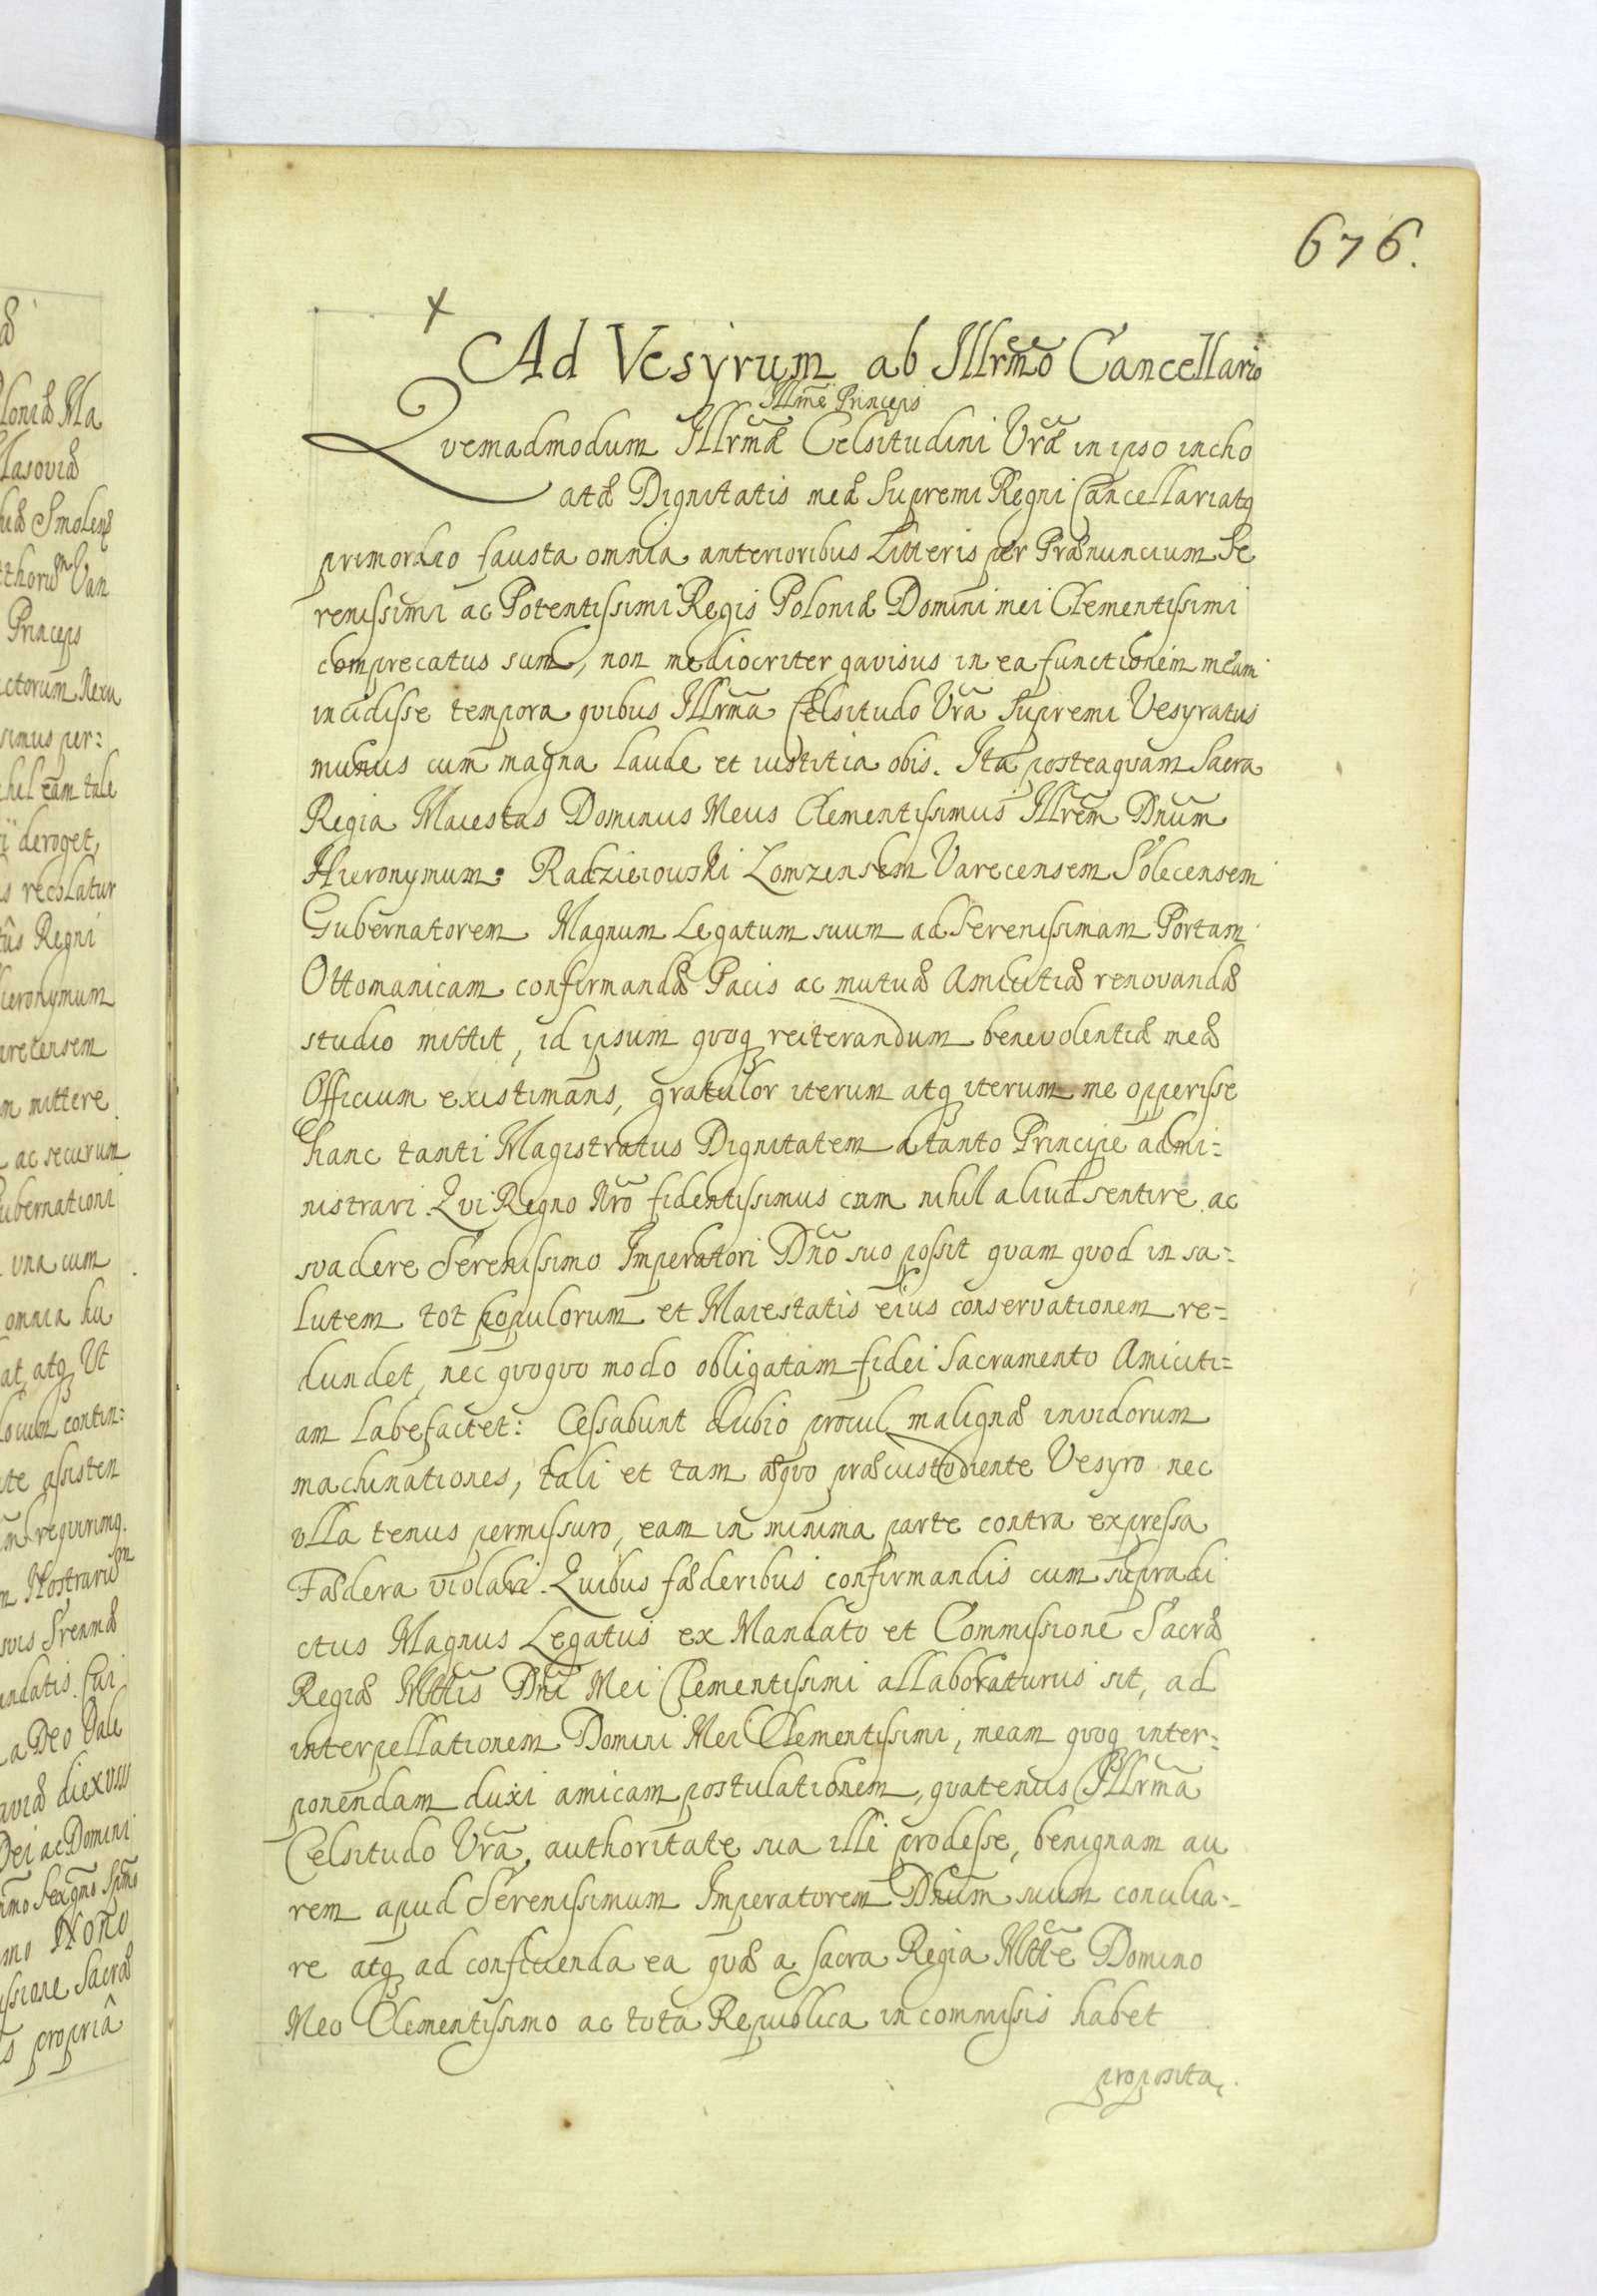 676.
Ad Vesyrum ab Illrmo Cancellario
Illme Princeps
Qvemadmodum Illrmæ Celsitudini Vræ in ipso incho
atæ Dignitatis meæ Supremi Regni Cancellariatq
primordio fausta omnia anterioribus Litteris per Prænuncium Se
renissimi ac Potentissimi Regis Poloniæ Domini mei Clementissimi
comprecatus sum, non mediocriter gavisus in ea functionem meam
incidisse tempora qvibus Illrma Celsitudo Vra Supremi Vesyratus
munus cum magna laude et iustitia obis. Ita posteaqvam Sacra
Regia Maiestas Dominus Meus Clementissimus Illrem Dnum
Hieronymum Radzieiouski Lomzensem Varecensem Solecensem
Gubernatorem Magnum Legatum suum ad Serenissimam Portam
Ottomanicam confirmandæ Pacis ac mutuæ Amicitiæ renovandæ
studio mittit, id ipsum qvoq reiterandum benevolentiæ meæ
Officium existimans, gratulor iterum atq iterum me opperisse
hanc tanti Magistratus Dignitatem a tanto Principe admi-
nistrari. Qvi Regno Nro fidentissimus cum nihil aliud sentire ac
svadere Serenissimo Imperatori Dno suo possit qvam qvod in sa-
lutem tot populorum et Maiestatis eius conservationem re-
dundet, nec qvoqvo modo obligatam fidei Sacramento Amiciti-
am labefactet: Cessabunt dubio procul malignæ invidorum
machinationes, tali et tam æqvo præcustodiente Vesyro nec
vlla tenus permissuro, eam in minima parte contra expressa
Fædera violari. Qvibus fæderibus confirmandis cum supradi
ctus Magnus Legatus ex Mandato et Commissione Sacræ
Regiæ Mttis Dni Mei Clementissimi allaboraturus sit, ad
interpellationem Domini Mei Clementissimi, meam qvoq inter-
ponendam duxi amicam postulationem, qvatenus Illrma
Celsitudo Vra, authoritate sua illi prodesse, benignam au
rem apud Serenissimum Imperatorem Dnum suum concilia-
re atq ad conficienda ea qvæ a Sacra Regia Mtte Domino
Meo Clementissimo ac tota Republica in commissis habet
proposita.